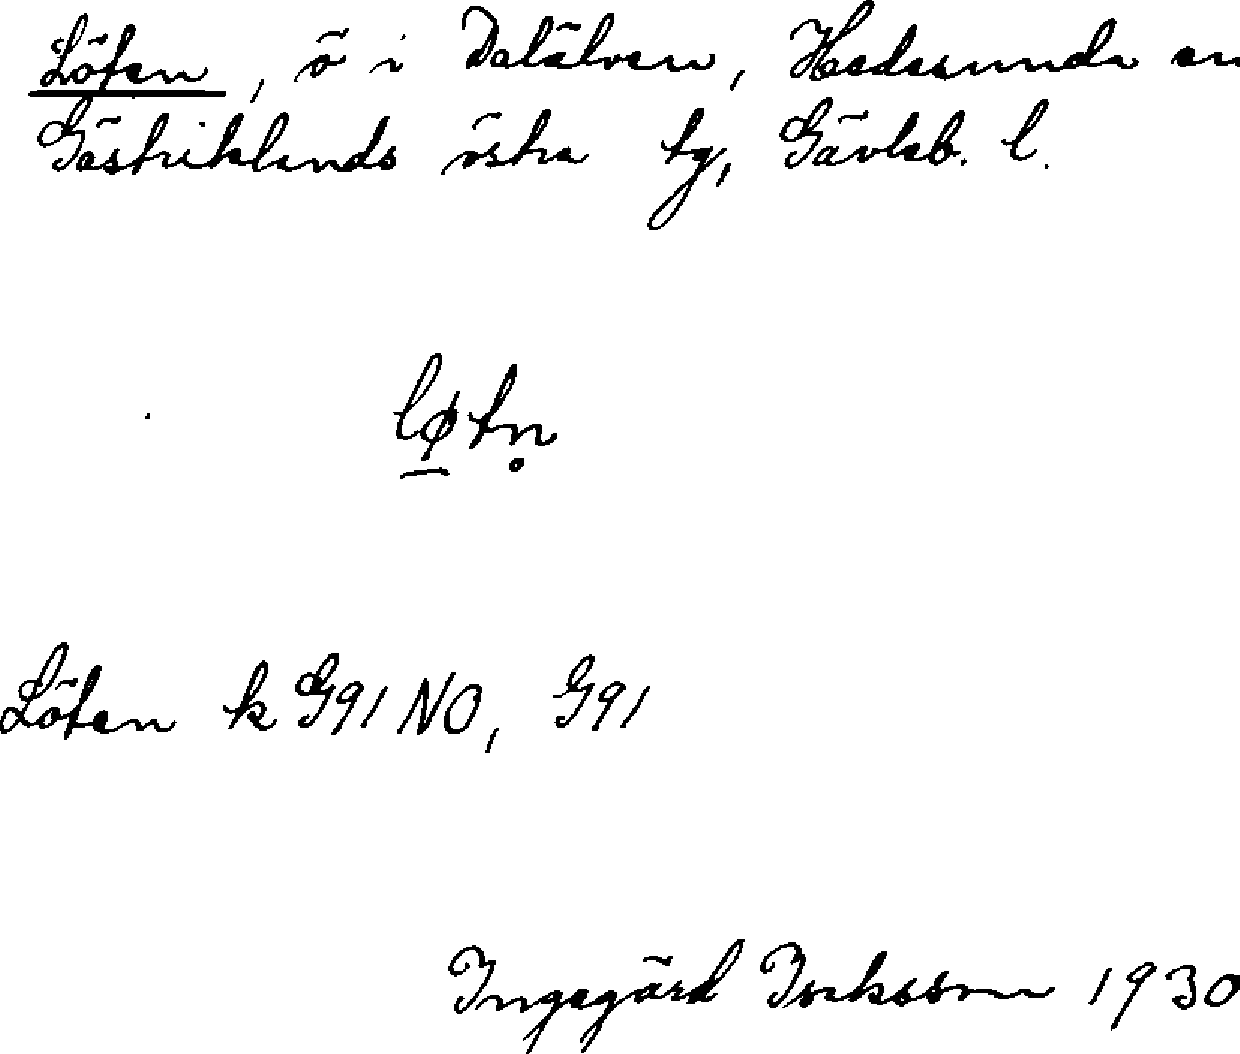 Löten, ö i Dalälven, Hedesunda sn
Gästriklands östra tg, Gävleb. l.
lø̱tn̥
Löten k G91 NO, G91
Ingegärd Isaksson 1930